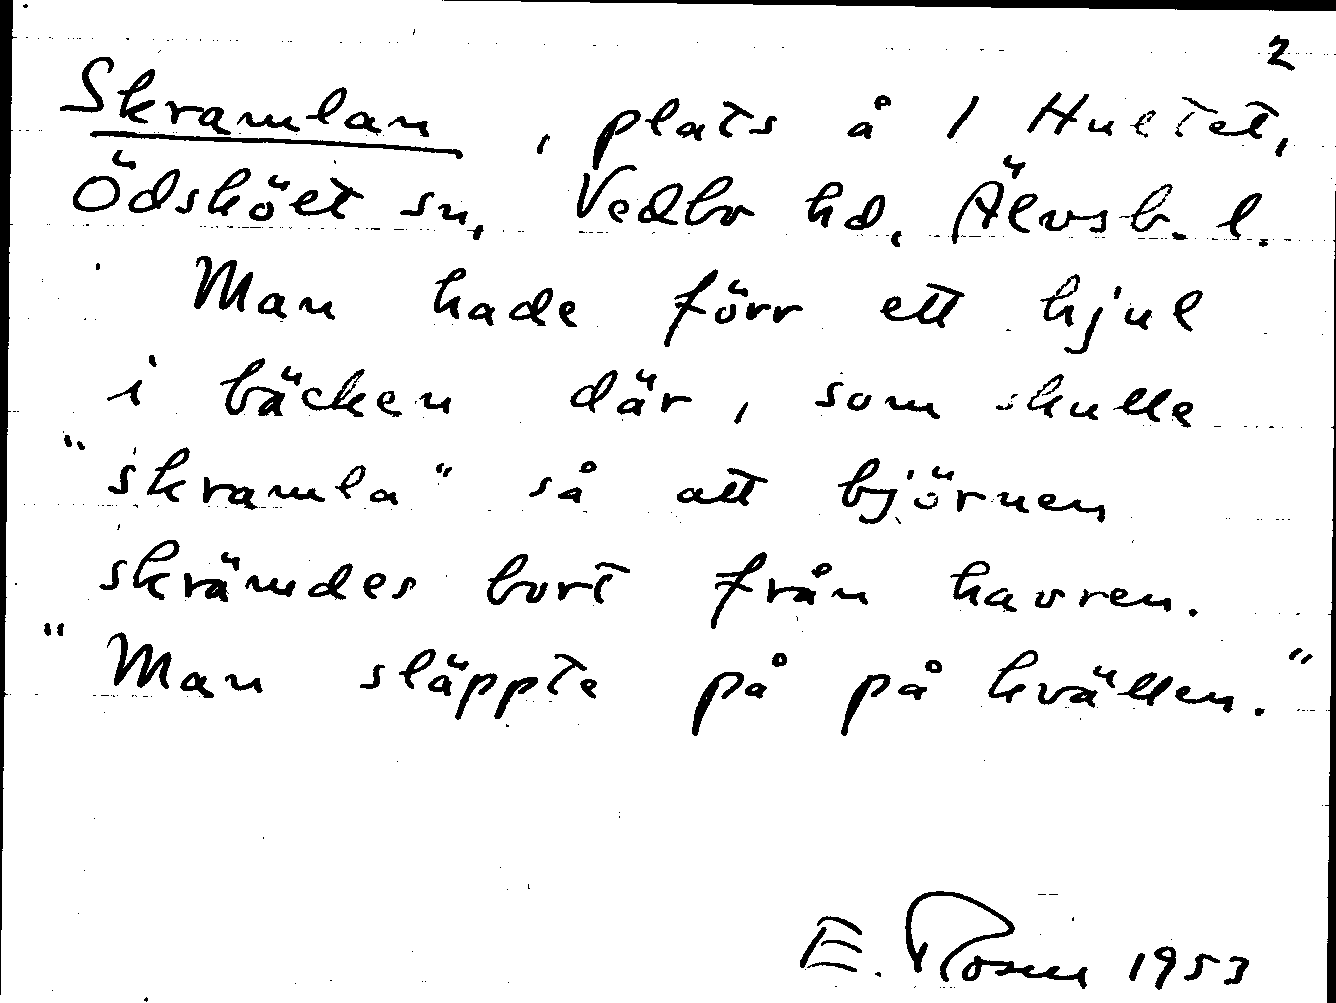 2
Skramlan, plats å 1 Hultet,
Ödskölt sn, Vedbo hd, Älvsb. l.
Man hade förr ett hjul
i bäcken där, som skulle
"skramla" så att björnen
skrämdes bort från havren.
"Man släppte på på kvällen."
E. Rosen 1953